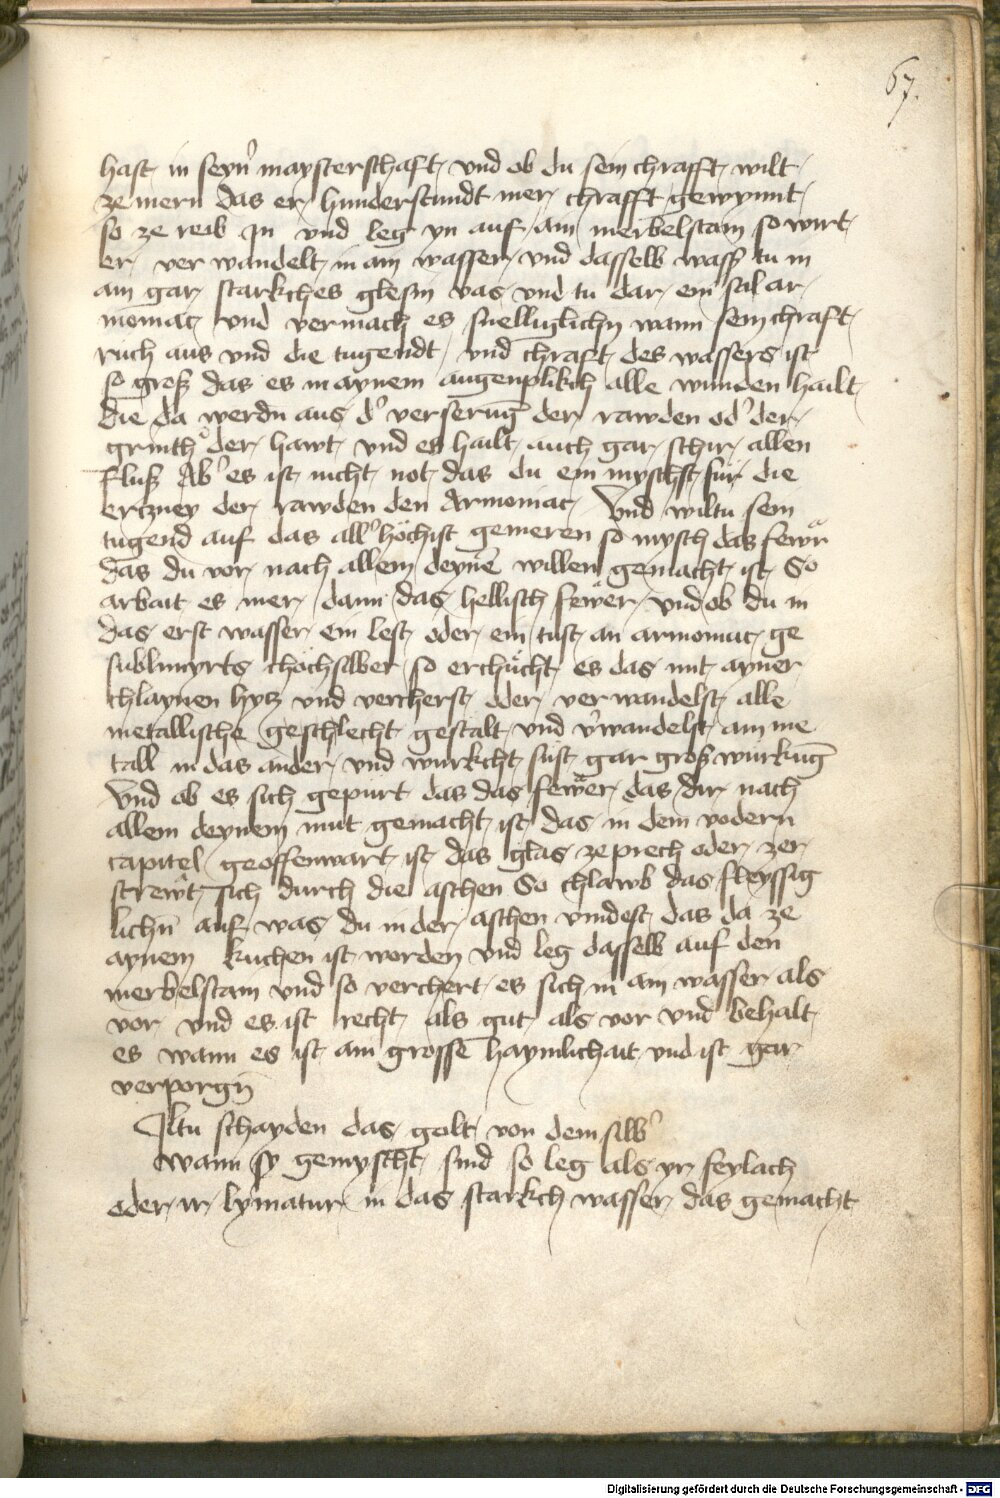 67.
hast in seyn' maysterschaft und ob du sein chrafft wilt
ze mern das er hunderstundt mer chrafft gewynnt
so ze reib In und leg yn auf ain merbelstain so wirt
er verwandelt in ain wasser und dasselb wass' tu in
ain gar starkches glesin vas und tu dar ein sal ar
moniac und vermach es snelliglichn̄ wann sein chraft
ruch aus und die tugendt und chraft des wassers ist
so groß das es in aynem augenplikch alle wunden hailt
die da werdn̄ aus d' verserūg der rawden od' der
grinth der hawt und es hailt auch gar schir allen
fluß Ab' es ist nicht not das du ein myschst für die
erczney der rawden den Armoniac Und wiltu sein
tugend auf das all' höchist gemeren so mysch das fewr
das du vor nach allem deynē willen gemacht ist So
arbait es mer dann das hellisch fewer und ob du in
das erst wasser ein lest oder ein tust an armoniac ge
sublimyrts chöchsilber so erchücht es das mit ayner
chlaynen hycz und vercherst oder verwandelst alle
metallische geschlecht gestalt und v'wandelst ain me
tall in das ander und wurkcht sust gar groß wurkūg
Und ob es sich gepurt das das fewer das dir nach
allem deynem mut gemacht ist das in dem vodern
capitel geoffenwart ist das glas zeprech oder zer
strewt sich durch die aschen So chlawb das fleyssig
lichn̄ auf was du in der aschen vindest das da ze
aynem kuchen ist worden und leg dasselb auf den
merbelstain und so verchert es sich in ain wasser als
vor und es ist recht als gut als vor und behalt
es wann es ist ain grosse haymlichait und ist gar
verporgn̄
Iltu schayden das golt von dem silb'
wann sy gemyscht sind so leg als yr feylach
oder ir lymatur in das starkch wasser das gemacht
Digitalisierung gefördert durch die Deutsche Forschungsgemeinschaft - DFG